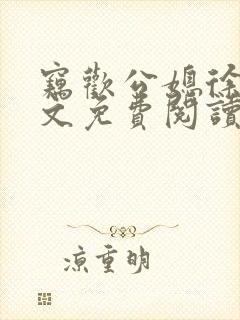 竊歡公媳徐
文免費閱讀
涼重明